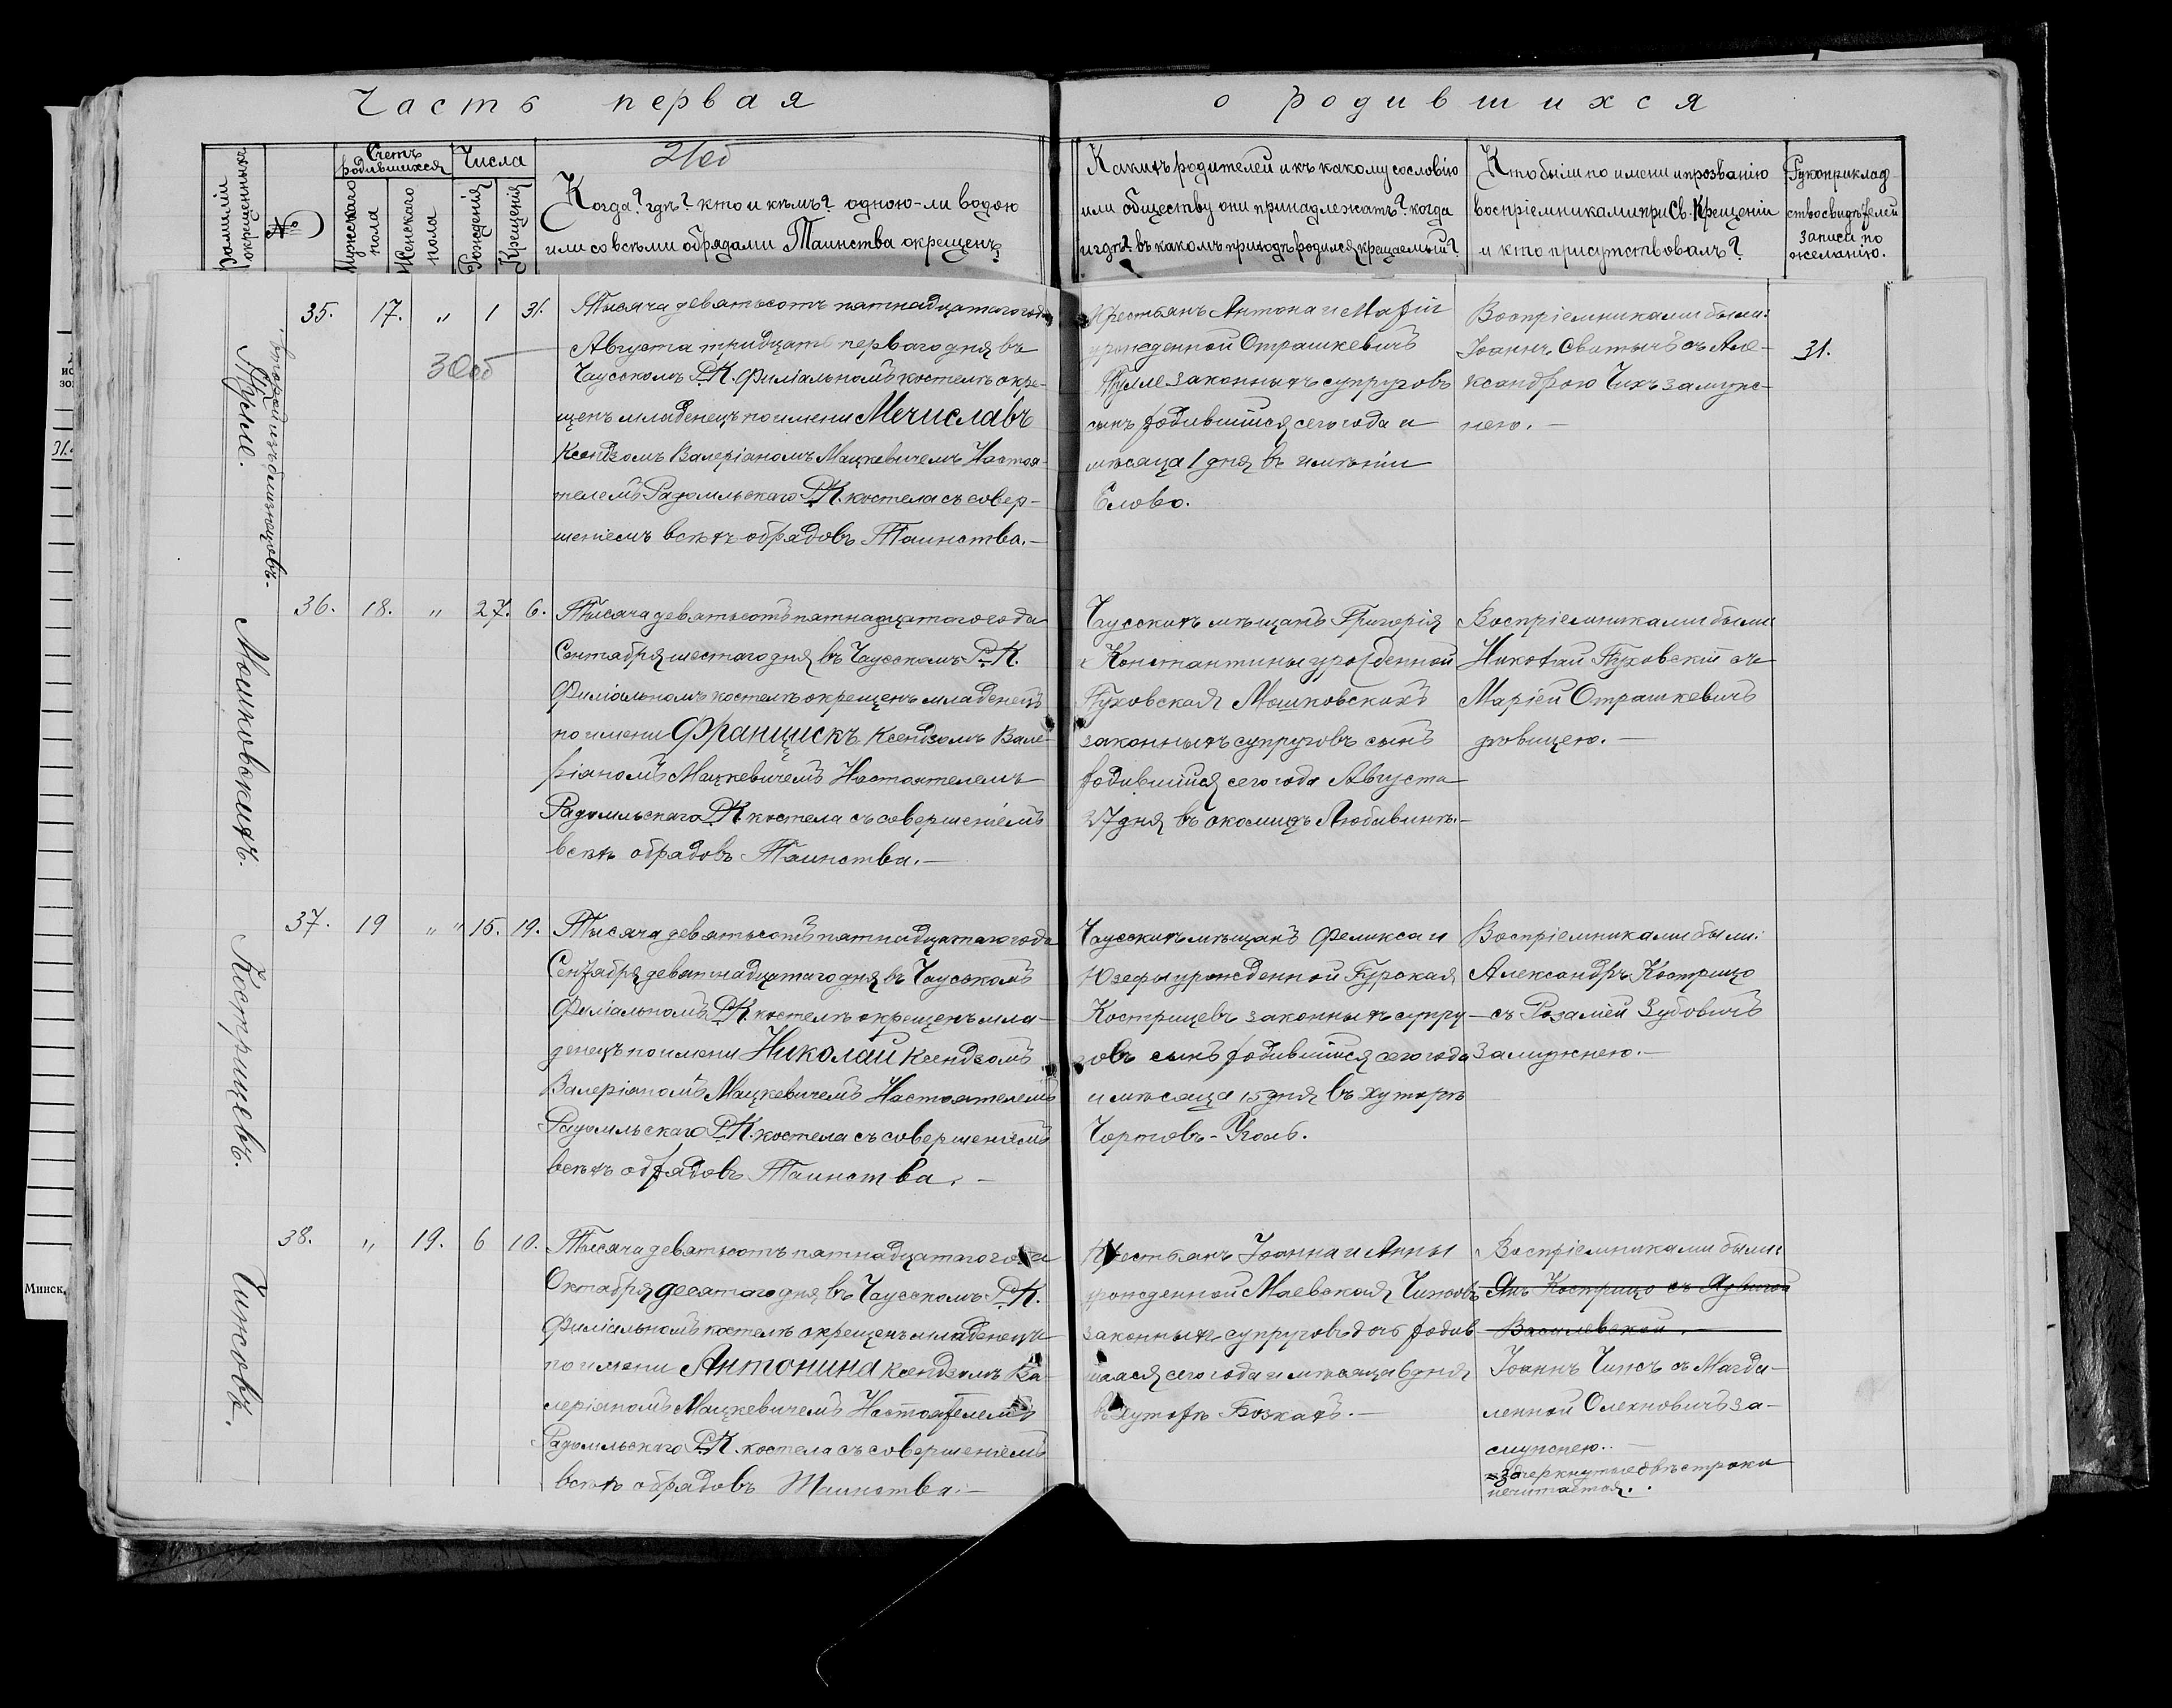 Часть первая
о родившихся
Фамиліи окрещенныхъ
№
Счетъ родившихся
Мужскаго пола
Женскаго пола
Числа
Рожденія
Крещенія
21об
Когда? гдѣ? кто и кѣмъ? одною-ли водою
или со всѣми обрядами Таинства окрещенъ
Какихъ родителей и къ какому сословію
или обществу они принадлежатъ? когда
и гдѣ? въ какомъ приходѣ родился крещаемый?
Кто были по имени и прозванію
воспріемниками при Св. Крещеніи
и кто присутствовалъ?
Рукоприклад-
ство свидѣтелей
записи по
желанію.
35. 17. " 1 31.
30об
Тысяча девятьсотъ пятнадцатаго года
Августа тридцать перваго дня въ
Чаусскомъ Р.К. филіальномъ костелѣ окре-
щенъ младенецъ по имени Мечиславъ
Ксендзомъ Валеріаномъ Мацкевичемъ Настоя-
телемъ Радомльскаго Р.К. костела съ совер-
шеніемъ всѣхъ обрядовъ Таинства.—
Крестьянъ Антона и Маріи
урожденной Отрашкевичъ
законныхъ супруговъ
сынъ родившійся сего года и
мѣсяца 1 дня въ имѣніи
Елово.
Воспріемниками были:
Іоаннъ Сватычъ съ Але-
ксандрою Чижъ замуж-
нею.—
31.
Мошковскихъ.
36. 18. " 27. 6.
Тысяча девятьсотъ пятнадцатаго года
Сентября шестаго дня въ Чаусскомъ Р.К.
Филіальномъ костелѣ окрещенъ младенецъ
по имени Францискъ Ксендзомъ Вале-
ріаномъ Мацкевичемъ Настоятелемъ
Радомльскаго Р.К. костела съ совершеніемъ
всѣхъ обрядовъ Таинства.—
Чаусскихъ мѣщанъ Григорія
и Константины урожденной
Пуховская Мошковскихъ
законныхъ супруговъ сынъ
родившійся сего года Августа
27 дня въ околицѣ Любавинѣ.—
Воспріемниками были
Николай Пуховскій съ
Маріей Отрашкевичъ
дѣвицею.—
Кострицевъ.
37. 19 " " 15. 19.
Тысяча девятьсотъ пятнадцатаго года
Сентября девятнадцатаго дня въ Чаусскомъ
Филіальномъ Р.К. костелѣ окрещенъ мла-
денецъ по имени Николай Ксендзомъ
Валеріаномъ Мацкевичемъ Настоятелемъ
Радомльскаго Р.К. костела съ совершеніемъ
всѣхъ обрядовъ Таинства.—
Чаусскихъ мѣщанъ Феликса и
Юзефы урожденной Гурская
Кострицевъ законныхъ супру-
говъ сынъ родившійся сего года
и мѣсяца 15 дня въ хуторѣ
Чортовъ-Уголъ.
Воспріемниками были:
Александръ Кострицо
съ Розаліей Зубовичъ
замужнею.—
Чижовъ.
38. " 19. 6 10.
Тысяча девятьсотъ пятнадцатаго года
Октября десятаго дня въ Чаусскомъ Р.К.
Филіальномъ костелѣ окрещенъ младенецъ
по имени Антонина Ксендзомъ Ва-
леріаномъ Мацкевичемъ Настоятелемъ
Радомльскаго Р.К. костела съ совершеніемъ
всѣхъ обрядовъ Таинства.—
Крестьянъ Іоанна и Анны
урожденной Маевская Чижовъ
законныхъ супруговъ дочь родив-
шаяся сего года и мѣсяца 6 дня
въ хуторѣ
Воспріемниками были
Янъ Кострицо съ Ядвигой
Василевской.
Іоаннъ Чижъ съ Магда-
леной Олехновичъ за-
мужнею.—
зачеркнутые двѣ строки
не читается.
31.
Минск,